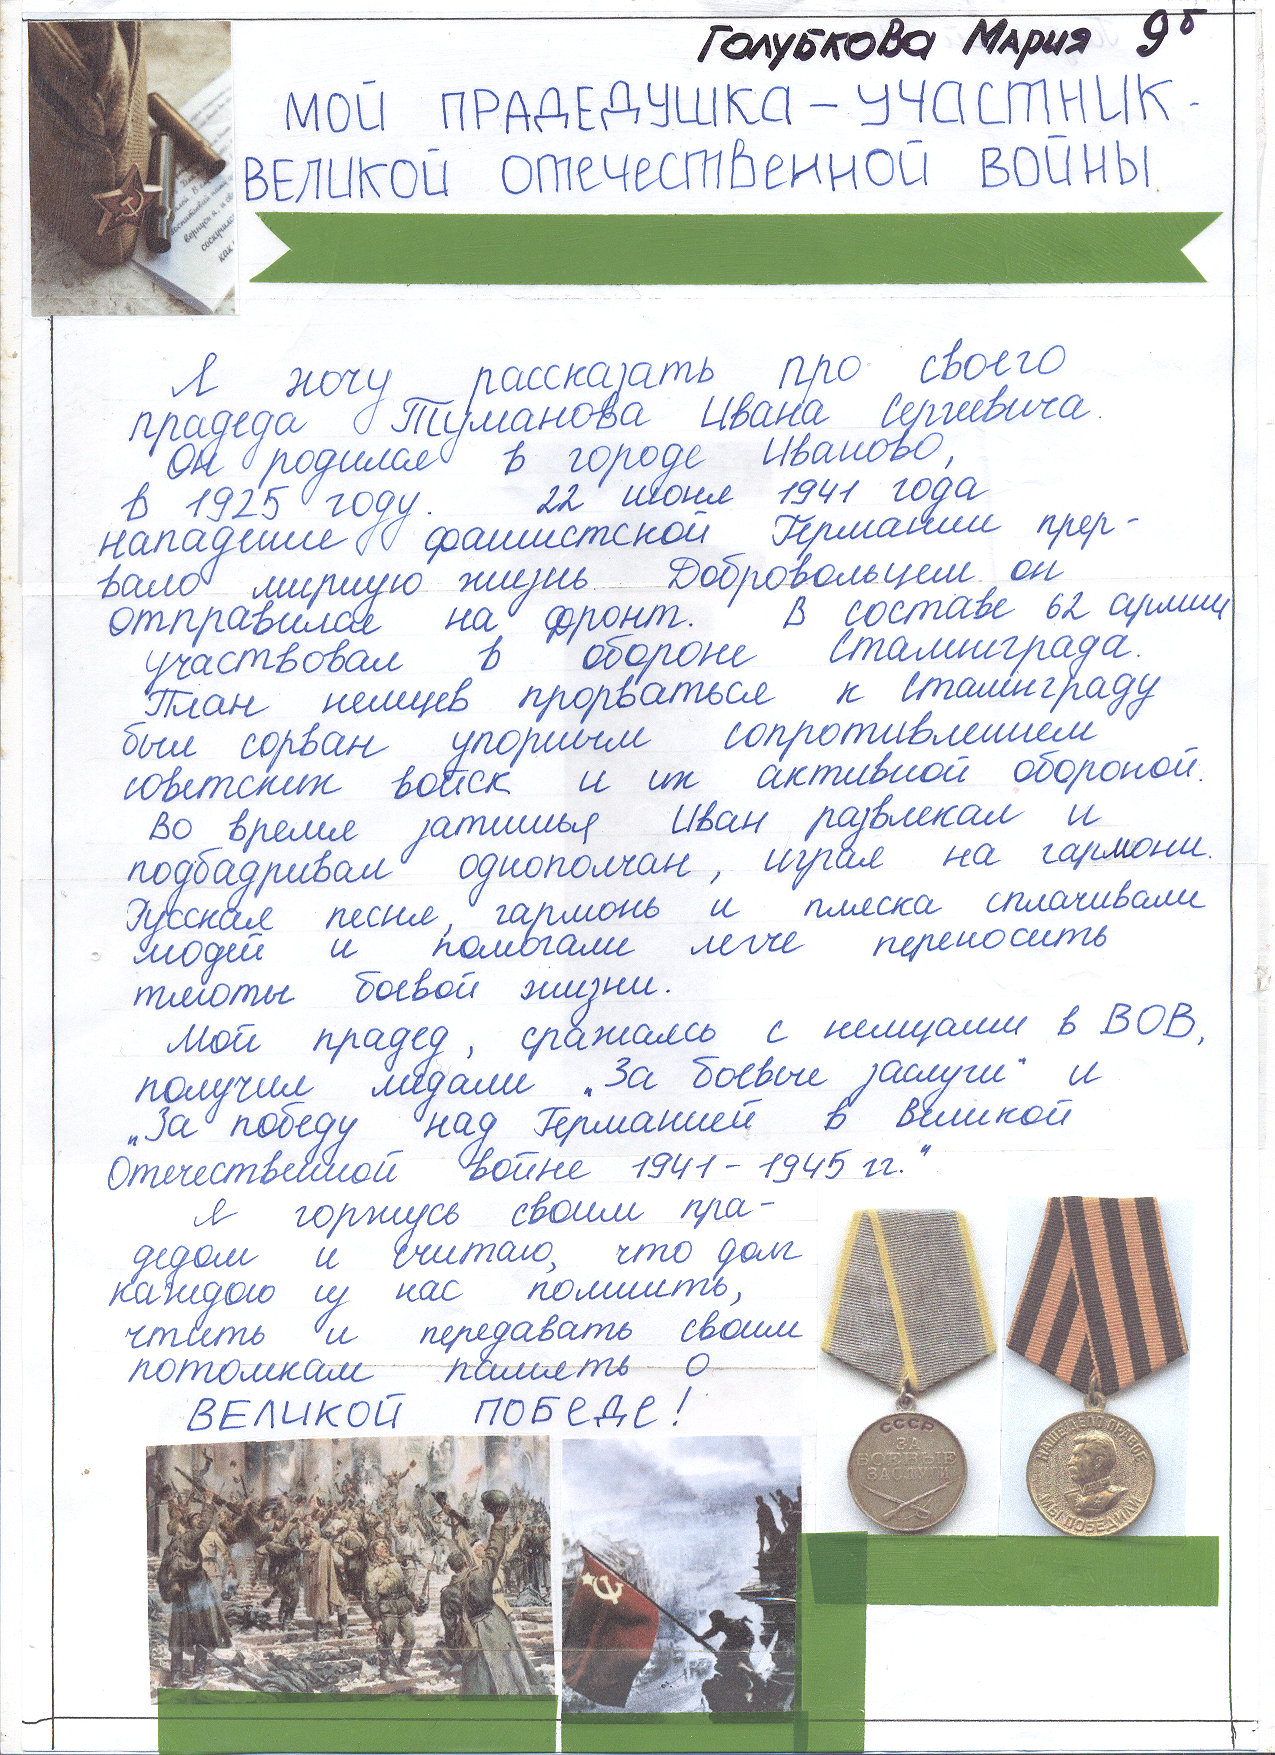 Голубкова Мария 9б
МОЙ ПРАДЕДУШКА – УЧАСТНИК
ВЕЛИКОЙ ОТЕЧЕСТВЕННОЙ ВОЙНЫ
Я хочу рассказать про своего
прадеда Туманова Ивана Сергеевича.
Он родился в городе Иваново,
в 1925 году. 22 июня 1941 года
нападение фашистской Германии прер-
вало мирную жизнь. Добровольцем он
отправился на фронт. В составе 62 армии
участвовал в обороне Сталинграда.
План немцев прорваться к Сталинграду
был сорван упорным сопротивлением
советских войск и их активной обороной.
Во время затишья Иван развлекал и
подбадривал однополчан, играя на гармони.
Русская песня, гармонь и пляска сплачивали
людей и помогали легче переносить
тяготы боевой жизни.
Мой прадед, сражаясь с немцами в ВОВ,
получил медали „За боевые заслуги" и
„За победу над Германией в Великой
Отечественной войне 1941 – 1945 гг."
Я горжусь своим пра-
дедом и считаю, что долг
каждого из нас помнить,
чтить и передавать своим
потомкам память о
ВЕЛИКОЙ ПОБЕДЕ!
СССР
ЗА
БОЕВЫЕ
ЗАСЛУГИ
НАШЕ ДЕЛО ПРАВОЕ
МЫ ПОБЕДИЛИ